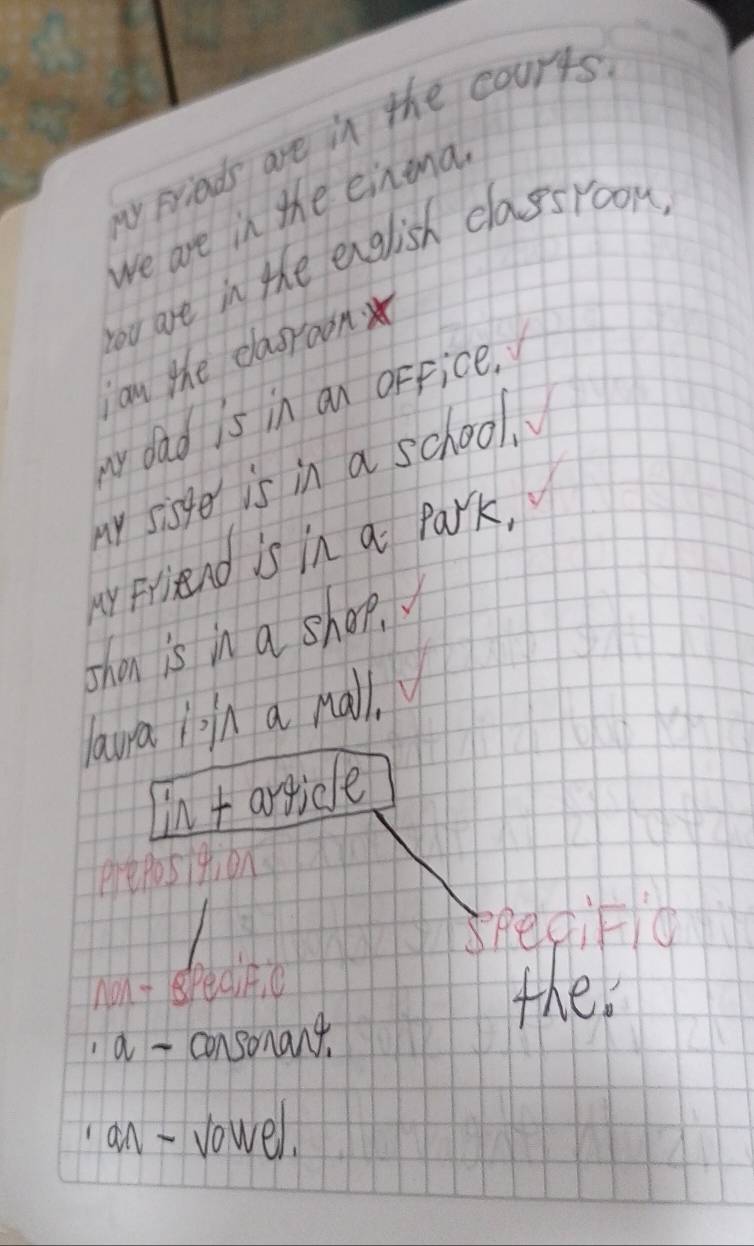 My Friads are in the courts.
We are in the cinema.
You are in the english classroom.
i am the clasroom. x
my dad is in an oFFice. ✓
my sister is in a school. ✓
my Friend is in a Park. ✓
shon is in a shop. ✓
laura i in a mall. ✓
in + article
Preposition
SPeciFic
non - SPeciFic
the:
· a - consonant.
· an - vowel.